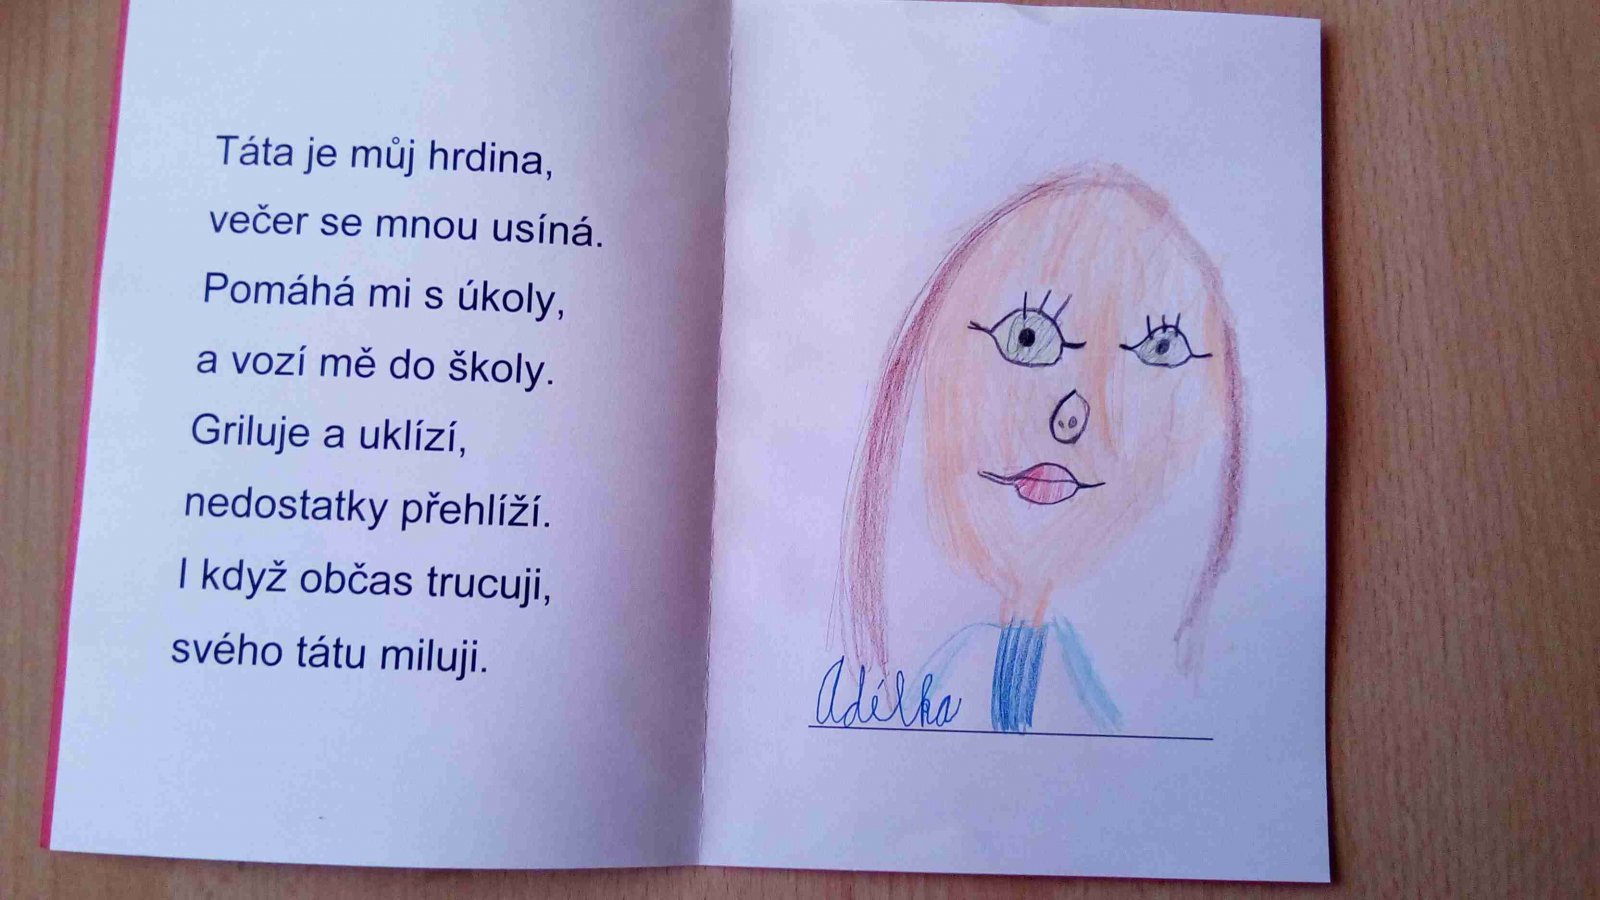 Táta je můj hrdina,
večer se mnou usíná.
Pomáhá mi s úkoly,
a vozí mě do školy.
Griluje a uklízí,
nedostatky přehlíží.
I když občas trucuji,
svého tátu miluji.
Adélka